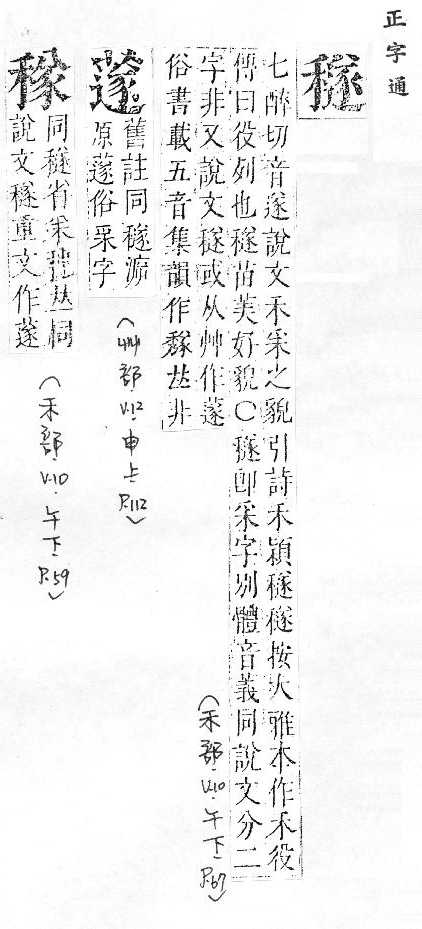 正字通
穟
七醉切音遂說文禾采之貌引詩禾穎穟穟按大雅本作禾役
傳曰役列也穟苗美好貌〇穟卽采字別體音義同說文分二
字非又說文穟或从艸作蓫
俗書載五音集韻作䅹𠀤非
(禾部 V.10.午下 P.67)
蓫
舊註同穟源
原蓫俗采字
(艸部 V.12 申上 P.112)
同穟省采𠀤同
說文穟重文作蓫
(禾部 V.10.午下 P.59)